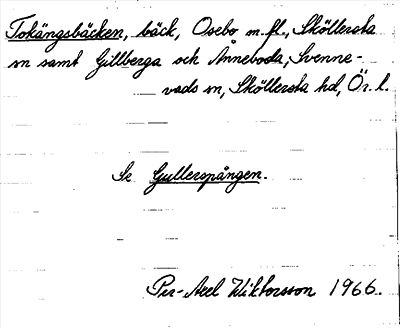 Tokängsbäcken, bäck, Osebo m.fl., Sköllersta
sn samt Gillberga och Anneboda, Svenne-
vads sn, Sköllersta hd, Ör. l.
Se Gullerspången.
Per-Axel Wiktorsson 1966.